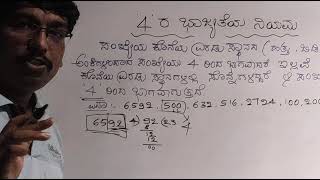 4 ರ ಭಾಜ್ಯತೆಯ ನಿಯಮ
ಸಂಖ್ಯೆಯ ಕೊನೆಯ ಎರಡು ಸ್ಥಾನದ (ಹತ್ತು, ಬಿಡಿ
ಅಂಕಿಗಳಿಂದಾದ ಸಂಖ್ಯೆಯು 4 ರಿಂದ ಭಾಗವಾದರೆ ಇಲ್ಲವೆ
ಕೊನೆಯ ಎರಡು ಸ್ಥಾನಗಳಲ್ಲಿ ಸೊನ್ನೆಗಳಿದ್ದರೆ ಆ ಸಂಖ್ಯೆ
'4' ರಿಂದ ಭಾಗವಾಗುತ್ತದೆ
ಉದಾ:- 6592, 500, 632, 516, 2724, 100, 200
6592 4) 92 (23 4
8
12
12
00